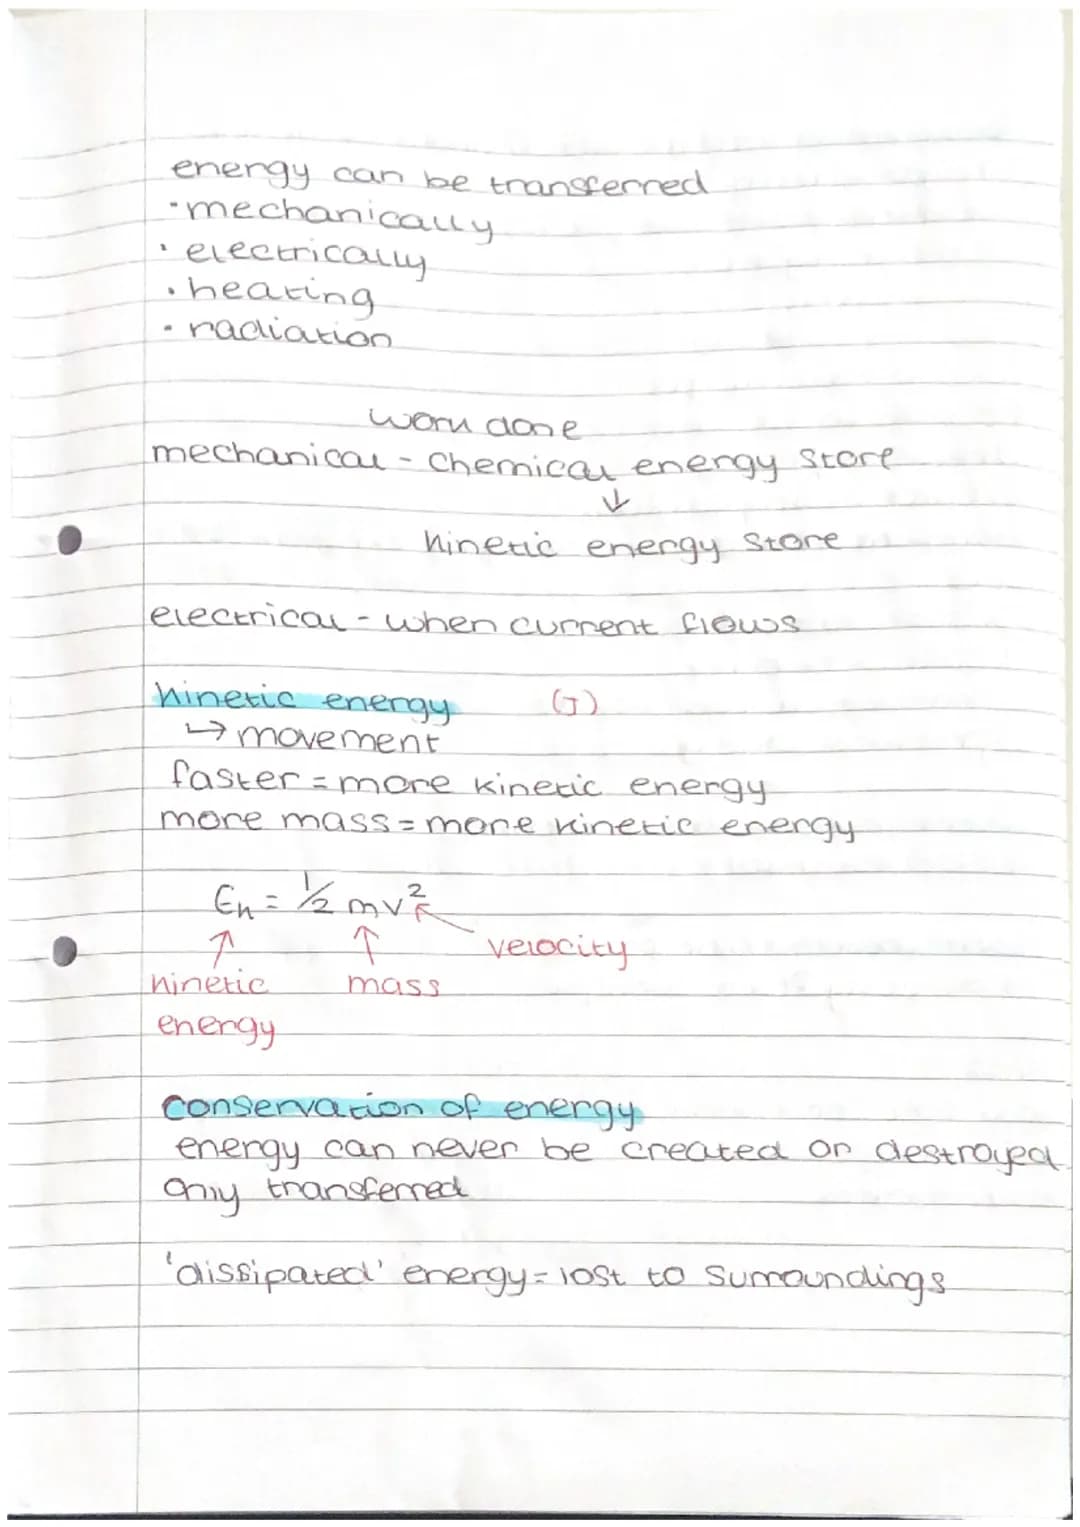 energy can be transferred
· mechanically
· electrically
· heating
· radiation
work done
mechanical - chemical energy store
↓
kinetic energy store
electrical - when current flows
kinetic energy (J)
↳ movement
faster = more kinetic energy
more mass = more kinetic energy
Ek = ½ mv²
↑ ↑ velocity
kinetic mass
energy
conservation of energy
energy can never be created or destroyed
only transferred
'dissipated' energy = lost to surroundings